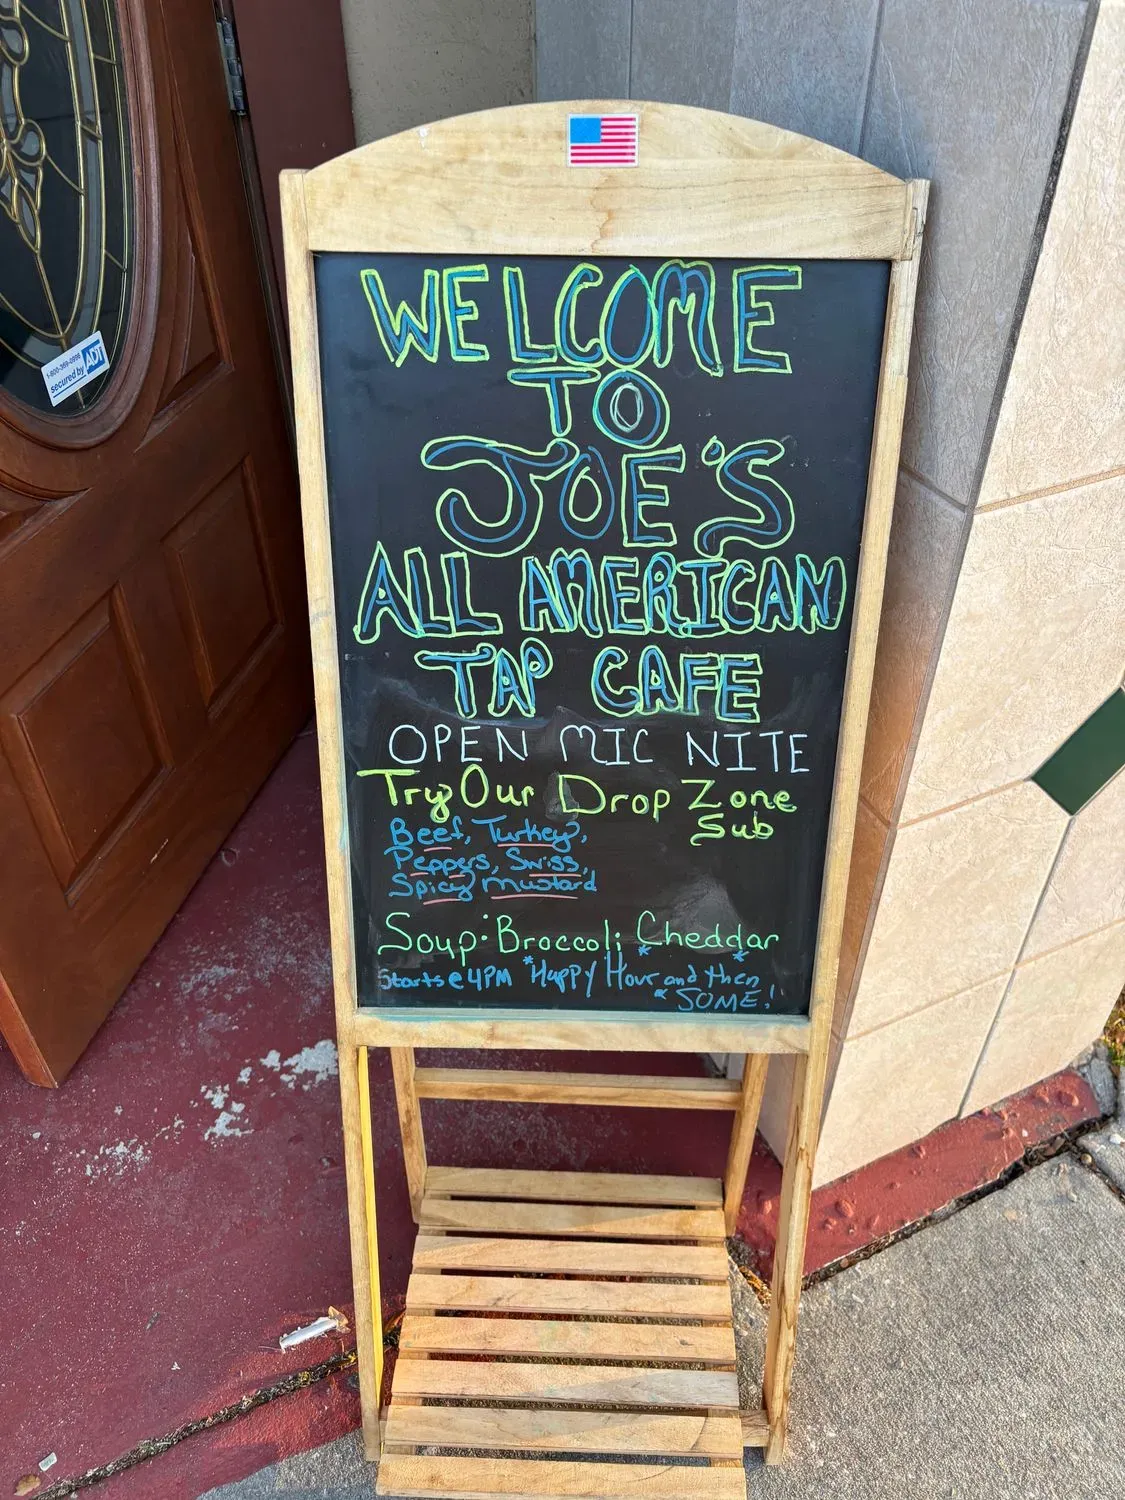 WELCOME
TO
JOE'S
ALL AMERICAN
TAP CAFE
OPEN MIC NITE
Try Our Drop Zone
Sub
Beef, Turkey,
Peppers, Swiss,
Spicy mustard
Soup: Broccoli Cheddar
Starts @ 4PM *Happy Hour and then
SOME!
1-800-369-0996
secured by ADT